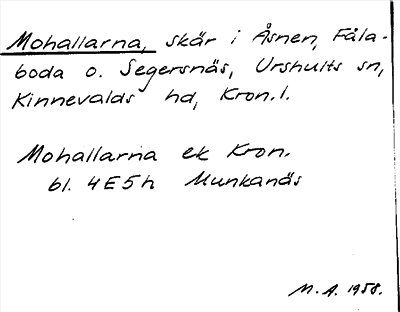 Mohallarna, skär i Åsnen, Fåla-
boda o. Segersnäs, Urshults sn,
Kinnevalds hd, Kron.l.
Mohallarna ek Kron.
bl. 4E5h Munkanäs
M.A. 1958.